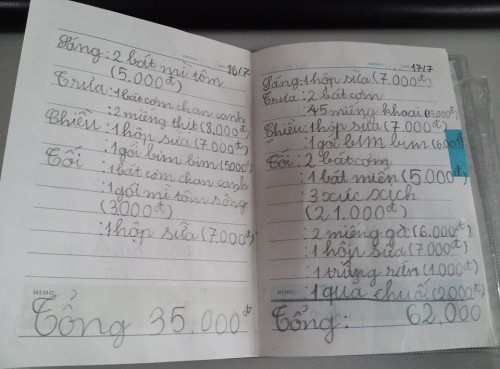 16/7
Sáng: 2 bát mì tôm
(5.000đ)
Trưa: 1 bát cơm chan canh
: 2 miếng thịt (8.000đ)
Chiều: 1 hộp sữa (7.000đ)
: 1 gói bim bim (5000đ)
Tối: 1 bát cơm chan canh
: 1 gói mì tôm sống
(3000đ)
: 1 hộp sữa (7.000đ)
MEMO
Tổng 35.000đ
17/7
Sáng: 1 hộp sữa (7.000đ)
Trưa: 2 bát cơm
45 miếng khoai (15.000đ)
Chiều: 1 hộp sữa (7.000đ)
: 1 gói bim bim (6.000đ)
Tối: 2 bát cơm
: 1 bát miến (5.000đ)
: 3 xúc xích
(21.000đ)
: 2 miếng gà (6.000đ)
: 1 hộp sữa (7.000đ)
: 1 trứng rán (1.000đ)
MEMO
: 1 quả chuối (2000đ)
Tổng: 62.000